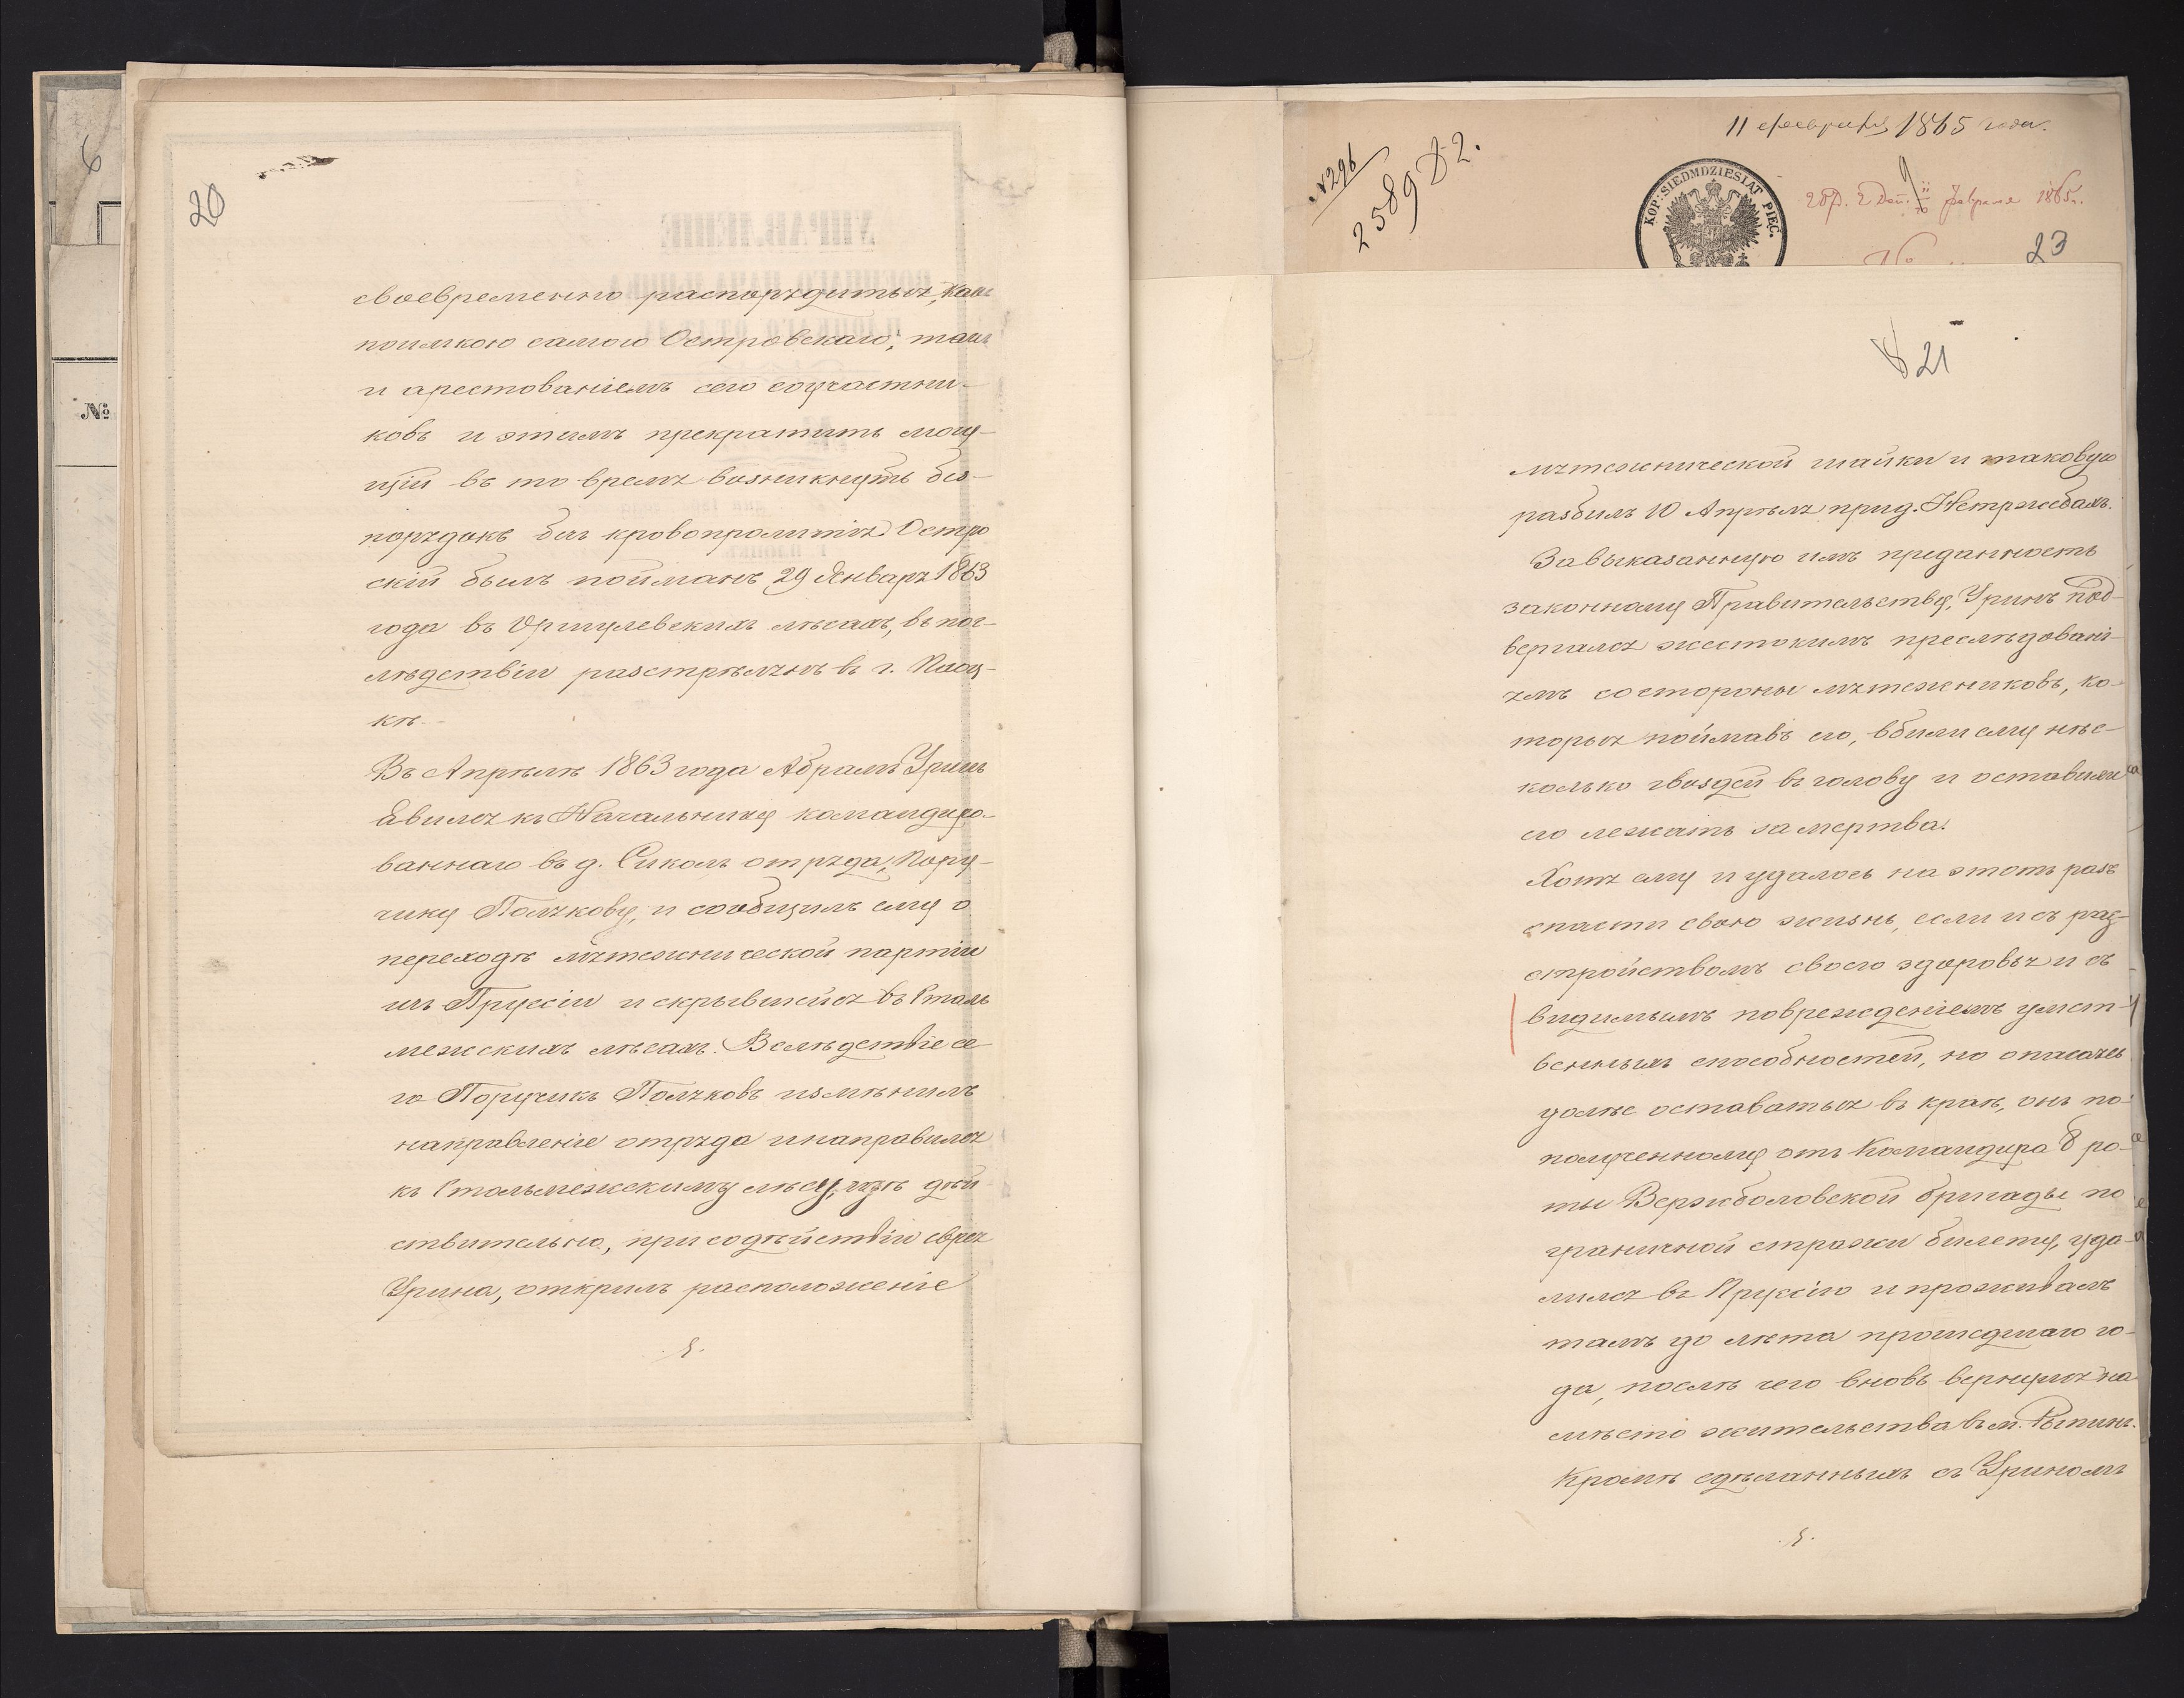 20
своевременно распорядиться, какъ
поимкою самого Островскаго, такъ
и арестованіемъ его соучастни-
ковъ и этимъ прекратить могу-
щій въ то время возникнуть без-
порядокъ безъ кровопролитія. Остро
скій былъ пойманъ 29 Января 1863
года въ Оршулевскихъ лѣсахъ, въ пос-
лѣдствіи разстрѣлянъ въ г. Плоц-
кѣ.
Въ Апрѣлѣ 1863 года Абрамъ Уринъ
явился къ Начальнику командиро-
ваннаго въ д. Сиколь отряда, Пору-
чику Полякову, и сообщилъ ему о
переходѣ мятежнической партіи
изъ Пруссіи и скрывшейся въ Столь
межскихъ лѣсахъ. Вслѣдствіе се-
го Поручикъ Поляковъ измѣнилъ
направленіе отряда и направился
къ Стольмежскому лѣсу, гдѣ дѣй-
ствительно, при содѣйствіи еврея
Урина, открылъ расположеніе
11 февраля 1865 года.
№296
258982.
KOP: SIEDMDZIESIAT PIĘC.
февраля 1865г.
№
23
21
мятежнической шайки и таковую
разбилъ 10 Апрѣля при д. Нетржебахъ.
За выказанную имъ преданность
законному Правительству, Уринъ под-
вергался жестокимъ преслѣдовані-
ямъ со стороны мятежниковъ, ко-
торые поймавъ его, вбили ему нѣс-
колько гвоздей въ голову и оставили
его лежать за мертва.
Хотя ему и удалось на этотъ разъ
спасти свою жизнь, если и съ раз-
стройствомъ своего здоровья и съ
видимымъ поврежденіемъ умст-
венныхъ способностей, но опасаясь
долѣе оставаться въ краѣ, онъ по
полученному отъ Командира 8 ро-
ты Вержболовской бригады по
граничной стражи билету, уда-
лился въ Пруссію и проживалъ
тамъ до лѣта прошедшаго го-
да, послѣ чего вновь вернулся на
мѣсто жительства въ м. Рыпинъ.
Кромѣ сдѣланныхъ съ Уриномъ